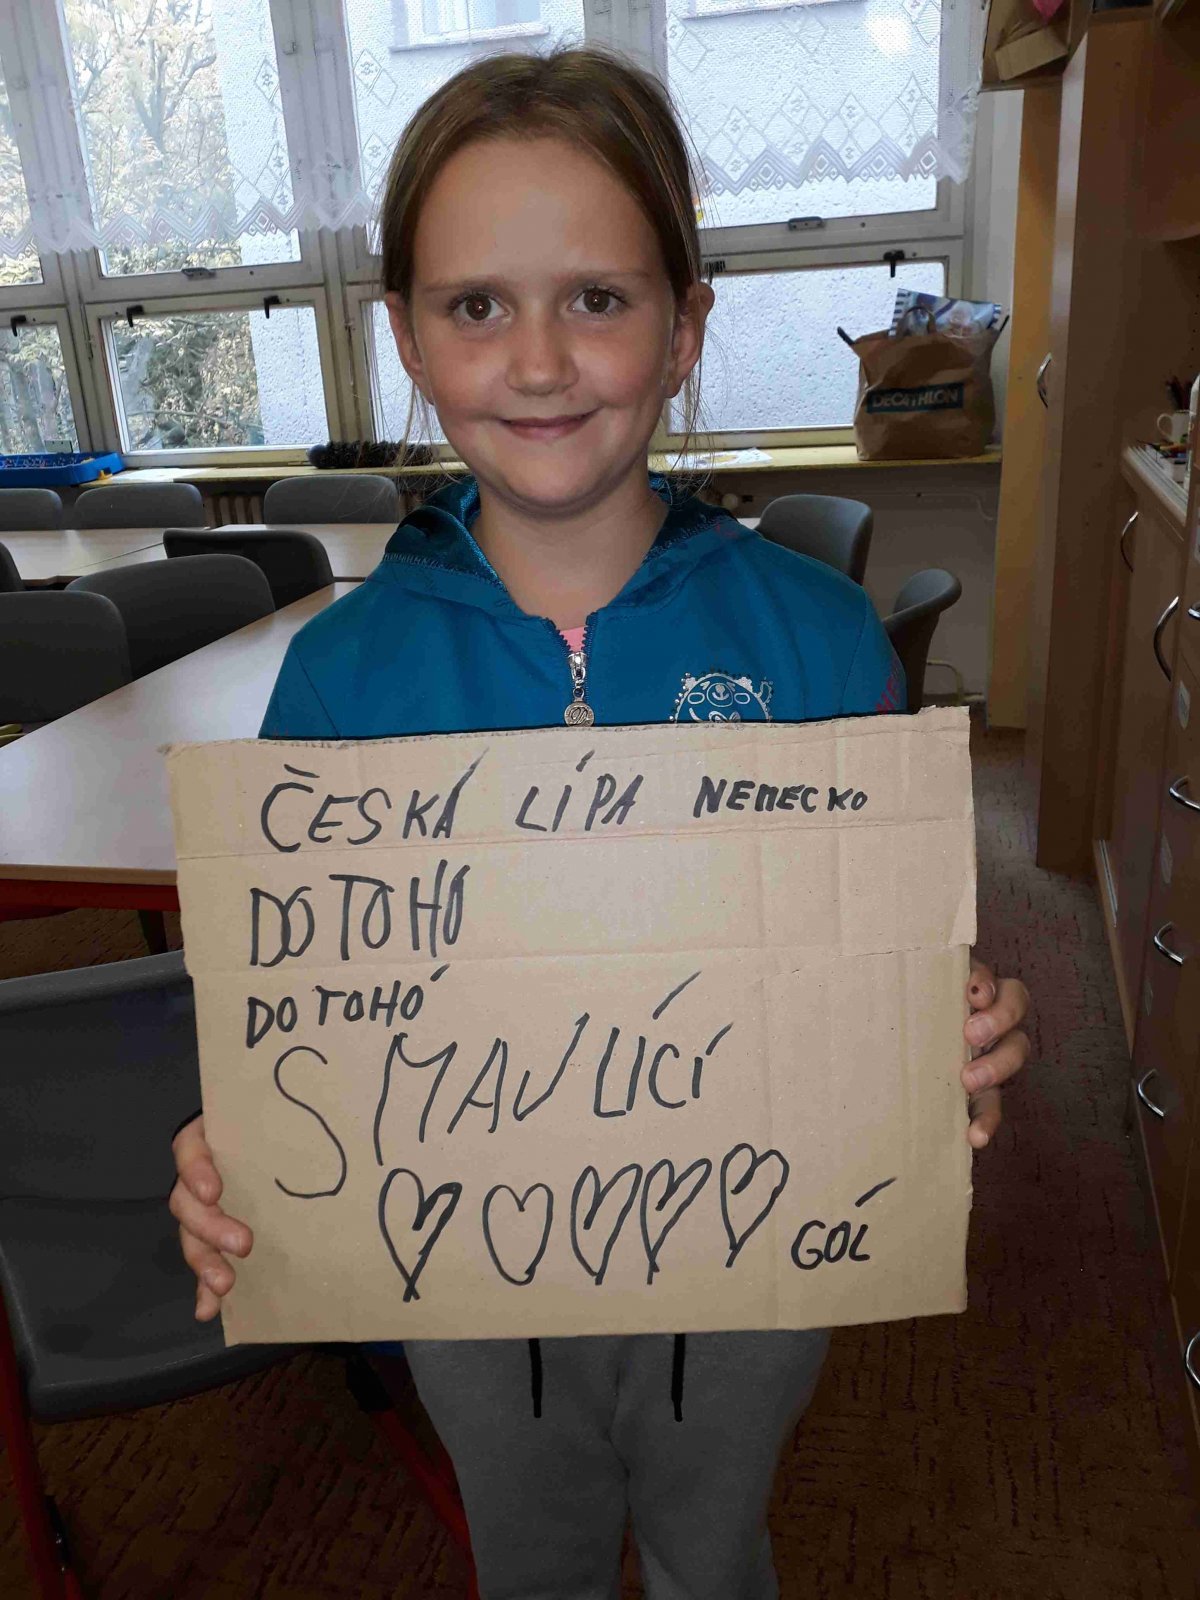 DECATHLON
ČESKÁ LÍPA NEMECKO
DO TOHO
DO TOHÓ
S MAVLÍCÍ
GOĹ